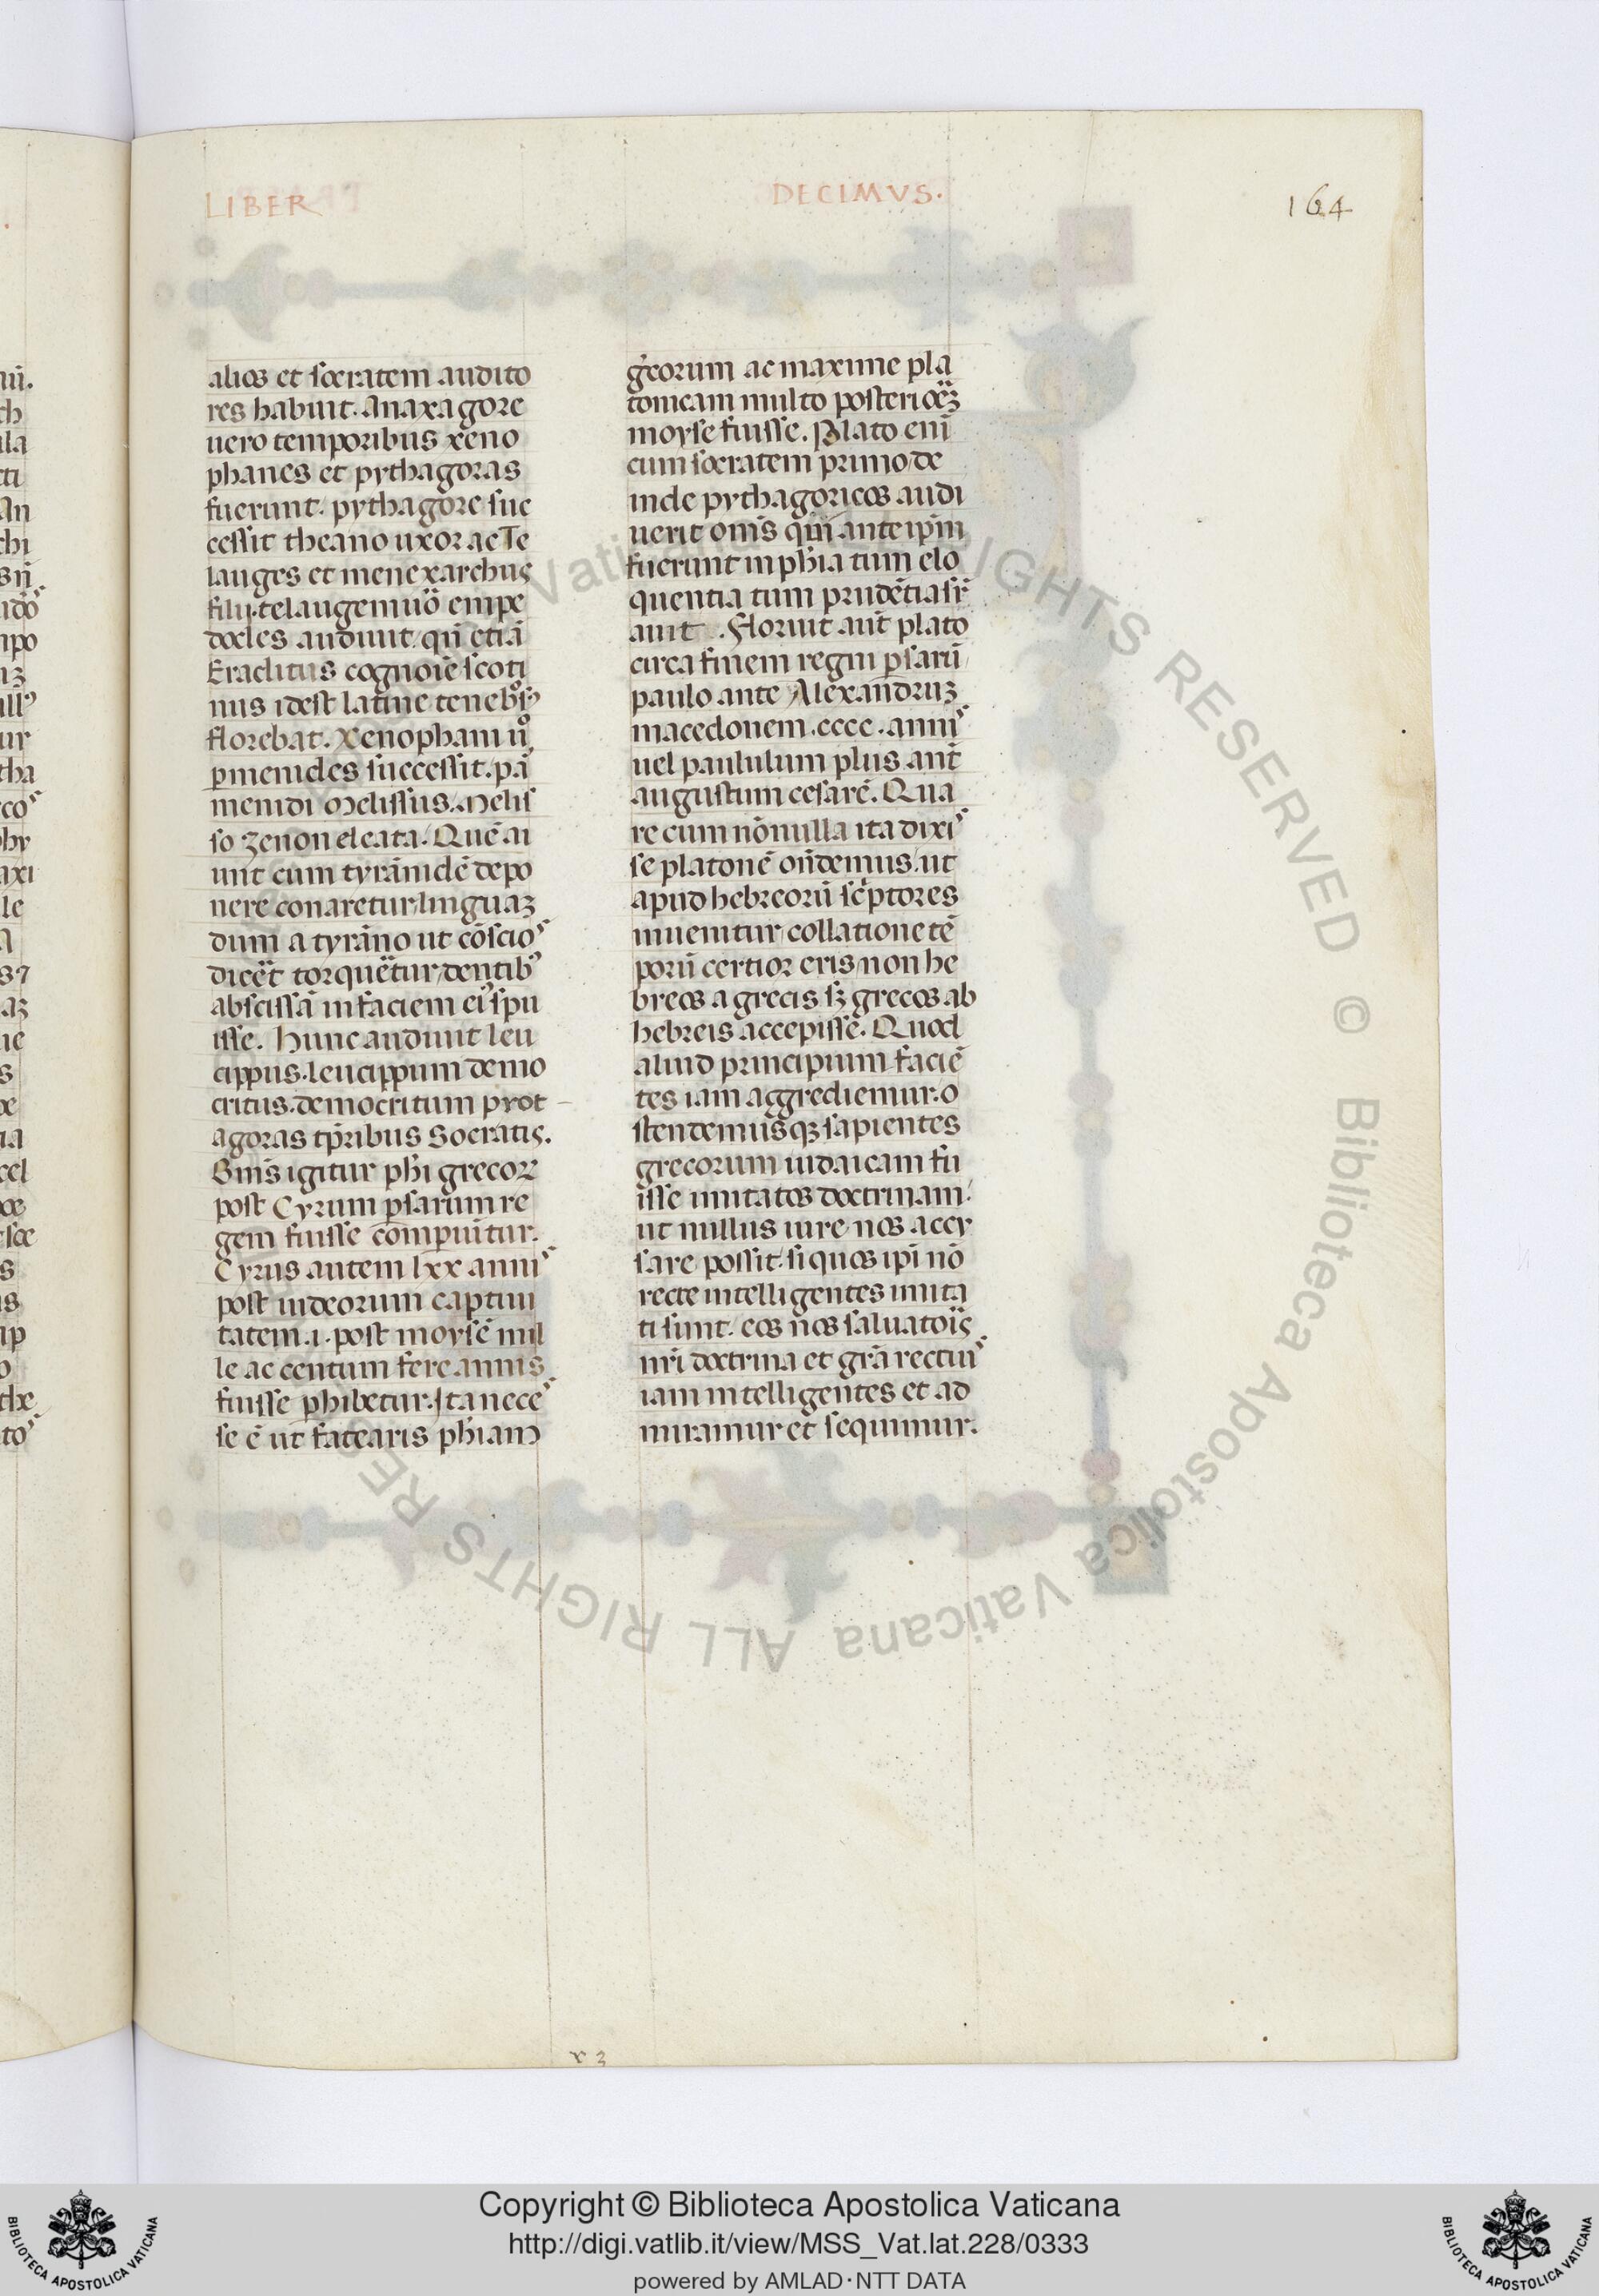 LIBER DECIMVS.
164
alios et socratem audito
res habuit. Anaxagore
uero temporibus xeno
phanes et pythagoras
fuerunt. pythagore suc
cessit theano uxor ac Te
lauges et menexarchus
filij. telaugem uo᷑ empe
docles audiuit. quē etiā
Eraclitus cognoīe scoti
nus idest latine
florebat. Xenophani u᷑
ꝑmenides successit. pa᷑
menidi Melissus. Melis
so zenon eleata. Quē ai
unt cum tyrānidē depo
nere conaretur linguaꝫ
dum a tyrāno ut cōscios
dicēt torquētur dentibꝰ
abscissā in faciem eiꝰ spu
isse. Hunc audiuit leu
cippus. leucippum demo
critus. democritum prot
agoras tp̄ribus Socratis.
igitur ph̄i grecoꝝ
post Cyrum ꝑsarum re
gem fuisse
Cyrus autem lxx annis
post iudeorum captiui
tatem .i. post moysē mil
le ac centum fere annis
fuisse ꝑhibetur. Ita neces
se ē ut fatearis ph̄iam
grecorum ac maxime pla
tonicam multo
moyse fuisse. Plato eni᷑
cum socratem primo de
inde pythagoricos audi
uerit om̄s qui ante ip̄m
fuerunt in ph̄ia tum elo
quentia tum prudētia
auit. Floruit aut̄ plato
circa finem regni ꝑsarū
paulo ante Alexandruꝫ
macedonem .cccc. annis
uel paululum plus ant̄
augustum cesarē. Qua
re cum nōnulla ita dixis
se platonē on̄demus ut
apud hebreorū sc̄ptores
inuenitur collatione tē
porū certior eris non he
breos a grecis sꝫ grecos ab
hebreis accepisse. Quod
aliud principium faciē
tes iam aggrediemur. o
stendemusqꝫ sapientes
grecorum iudaicam fu
isse imitatos doctrinam.
ut nullus iure nos accu
sare possit. si quos ip̄i nō
recte intelligentes imita
ti sunt. eos nos saluatoris
nr̄i doctrina et gr̄a rectius
iam intelligentes et ad
miramur et sequimur.
r 3
© Biblioteca Apostolica Vaticana ALL RIGHTS RESERVED
Copyright © Biblioteca Apostolica Vaticana
http://digi.vatlib.it/view/MSS_Vat.lat.228/0333
powered by AMLAD·NTT DATA
BIBLIOTECA APOSTOLICA VATICANA
BIBLIOTECA APOSTOLICA VATICANA